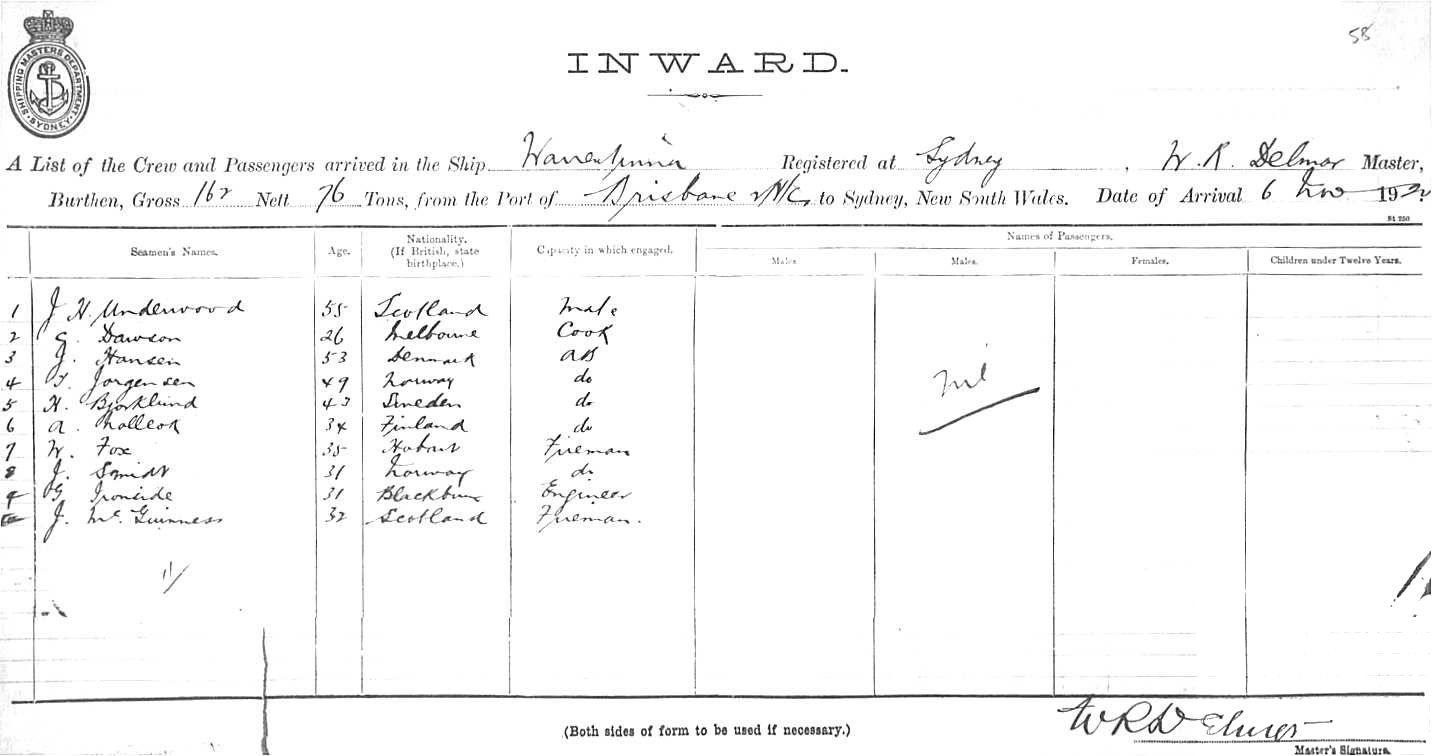 58
SHIPPING MASTERS DEPARTMENT · SYDNEY ·
INWARD.
A List of the Crew and Passengers arrived in the Ship Registered at Sydney, W. R. Delmar Master,
Burthen, Gross 162 Nett 76 Tons, from the Port of Brisbane to Sydney, New South Wales. Date of Arrival 6 Nov 19
Seamen's Names. Age. Nationality. (If British, state birthplace.) Capacity in which engaged. Names of Passengers.
Males Males. Females. Children under Twelve Years.
1 J H. Underwood 55 Scotland Mate
2 G. Dawson 26 Melbourne Cook
3 J. Hansen 53 Denmark AB
4 T. Jorgensen 49 Norway do
5 H. Bjorklund 43 Sweden do
6 A. 34 Finland do
7 W. Fox 35 Hobart Fireman
8 J. Smidt 31 Norway do
9 G. Ironside 31 Blackburn Engineer
10 J. McGuinness 32 Scotland Fireman.
Nil
11/
(Both sides of form to be used if necessary.)
W R Delmar
Master's Signature.